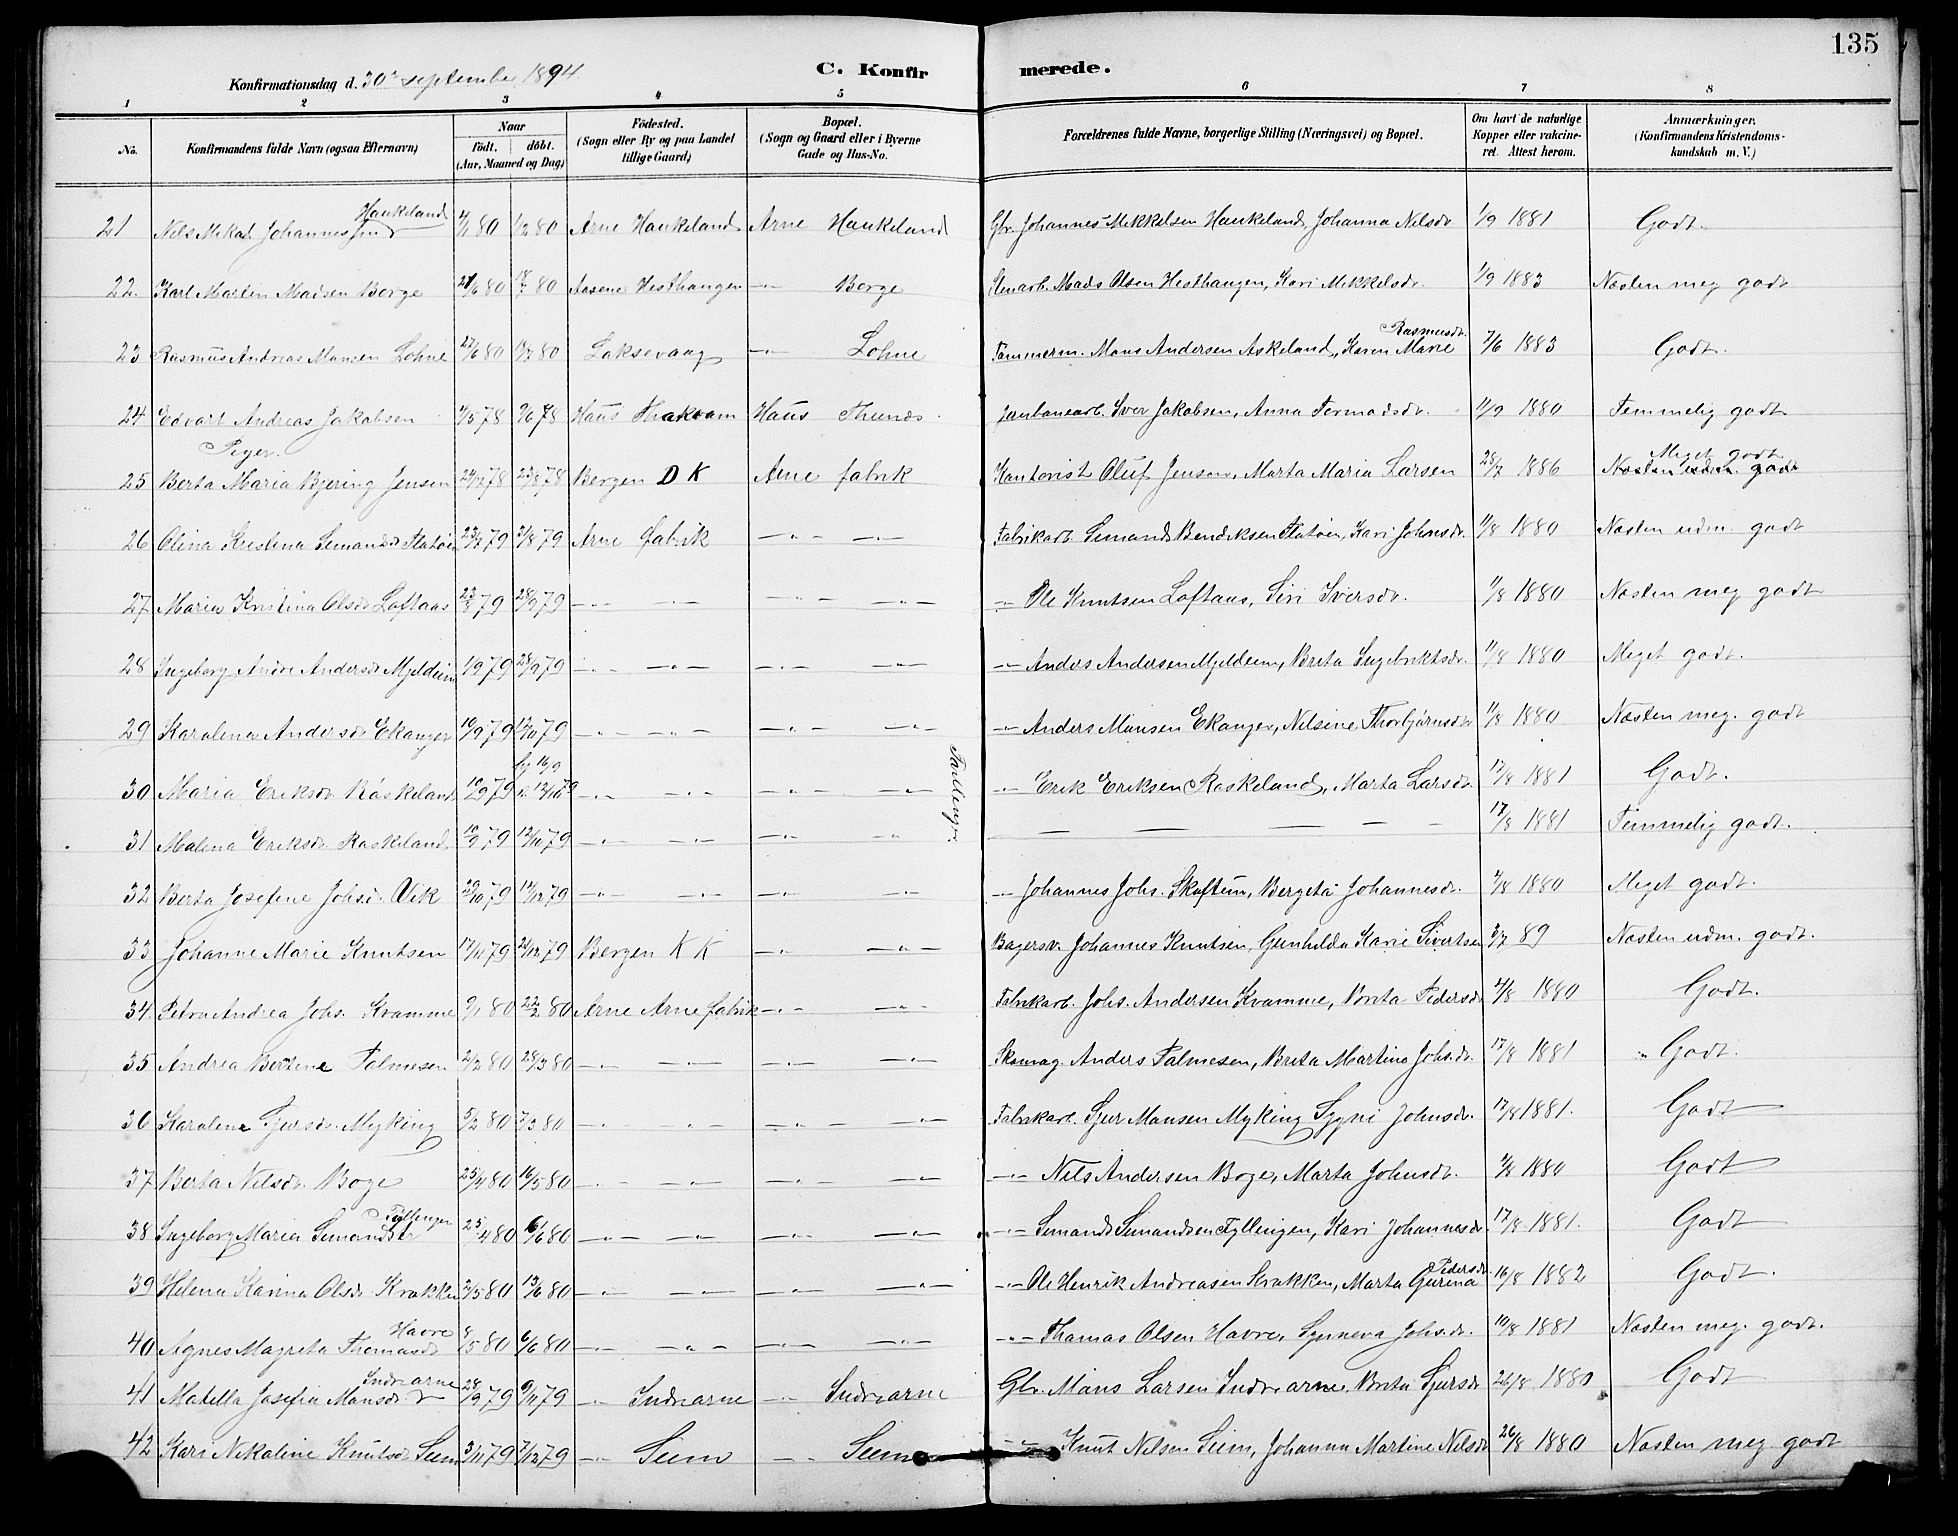 135
Konfirmationsdag d. 30te september 1894.
C. Konfirmerede.
1 2 3 4 5 6 7 8
No.
Konfirmandens fulde Navn (ogsaa Efternavn)
Naar født. døbt. (Aar, Maaned og Dag)
Fødested. (Sogn eller By og paa Landet tillige Gaard)
Bopæl. (Sogn og Gaard eller i Byerne Gade og Hus-No.
Forældrenes fulde Navne, borgerlige Stilling (Næringsvei) og Bopæl.
Om havt de naturlige Kopper eller vakcineret. Attest herom.
Anmærkninger. (Konfirmandens Kristendomskundskab m. V.)
21 Nels Mikal Johannessen Haukeland 80 1/2 80 Arne Haukeland Arne Haukeland Gbr. Johannes Mikkelsen Haukeland, Johanna Nilsdr. 1/9 1881 Godt.
22. Karl Martin Madsen Borge 21/6 80 18/7 80 Aasene Hesthaugen -"- Borge Stenarb. Mads Olsen Hesthaugen, Kari Mikkelsdr. 1/9 1883 Næsten meg godt
23 Rasmus Andreas Mansen Lohne 27/6 80 80 Laksevaag -"- Lohne Tømmerm. Mans Andersen Askeland, Karen Marie Rasmusdr. 7/6 1883 Godt.
24 Edvart Andreas Jakobsen 4/5 78 9/6 78 Haus Thakvam Haus Thunæs. Jernbanearb. Iver Jakobsen, Anna Tormodsdr. 11/9 1880 Temmelig godt
Piger.
25 Berta Maria Bjering Jensen 78 78 Bergen D K Arne fabrik Kontorist Oluf Jensen, Marta Maria Larsen 28/7 1886 Meget godt Næsten udm. godt
26 Olina Kristina Simonsdr Statøen 23/7 79 31/8 79 Arne fabrik -"- -"- Fabrikarb. Simond Bendiksen Statøen, Kari Johnsdr. 11/8 1880 Næsten udm. godt
27 Maria Kristina Olsdr Loftaas 23/8 79 28/9 79 -"- -"- -"- -"- -"- Ole Knutsen Loftaas, Siri Iversdr. 11/8 1880 Næsten meg godt
28 Ingeborg Andre Andersdr Mjeldeim 1/9 79 28/9 79 -"- -"- -"- -"- -"- Anders Andersen Mjeldeim, Brita Ingebriktsdr. 11/8 1880 Meget godt.
29 Karalena Andersdr Ekanger 10/9 79 12/10 79 -"- -"- -"- -"- -"- Anders Mansen Ekanger, Nilsine Thorbjørnsdr 11/8 1880 Næsten meg. godt
30 Maria Eriksdr. Raskeland 10/9 79 16/9 12/10 79 -"- -"- -"- -"- Tvillinger. -"- Erik Eriksen Raskeland, Marta Larsdr. 17/8 1881 Godt.
31 Malena Eriksdr. Raskeland. 10/9 79 12/10 79 -"- -"- -"- -"- — — — — 17/8 1881 Temmelig godt.
32 Berta Josefine Johsdr. Vik 29/10 79 14/12 79 -"- -"- -"- -"- -"- Johannes Johs. Skaftun, Bergeta Johannesdr. 1880 Meget godt.
33 Johanne Marie Knutsen 17/11 79 26/12 79 Bergen K K -"- -"- Bagersv. Johannes Knutsen, Gunhilda Karie Sivertsen 3/7 89 Næsten udm. godt.
34. Petra Andrea Johs. Kvamme 9/1 80 22/2 80 Arne Arne fabrik -"- -"- Fabrikarb. Johs. Andersen Kvamme, Brita Pedersdr 1880 Godt.
35 Andrea Bertine Palmesen 2/2 80 28/3 80 -"- -"- -"- -"- Skomag. Anders Palmesen, Brita Martine Johs.dr. 17/8 1881 Godt.
36 Karalene Sjursdr. Myking 5/2 80 7/3 80 -"- -"- -"- -"- Fabrikarb. Sjur Mansen Myking, Sygni Johnsdr. 17/8 1881. Godt
37 Berta Nilsdr. Boge 25/4 80 16/5 80 -"- -"- -"- -"- -"- Nils Andersen Boge, Marta Johnsdr. 1880 Godt
38 Ingeborg Maria Simonsdr Tyllingen 25/4 80 6/6 80 -"- -"- -"- -"- -"- Simond Simondsen Tyllingen, Kari Johannesdr. 17/8 1881. Godt
39 Helena Karina Olsdr Krakken 2/5 80 13/6 80 -"- -"- -"- -"- -"- Ole Henrik Andreasen Krakken, Marta Gurina Pedersdr. 16/8 1882 Godt.
40 Agnes Magreta Thomasdr Havre 8/5 80 6/6 80 -"- -"- -"- -"- -"- Thomas Olsen Havre, Synneva Johs.dr. 10/8 1881 Næsten meg. godt.
41 Matella Josefia Mansdr Indrearne 28/9 79 9/11 79 -"- Indrearne -"- Indrearne Gbr. Mans Larsen Indrearne, Brita Sjursdr 26/8 1880 Godt
42 Kari Nikoline Knutsdr Seim 3/11 79 7/12 79 -"- Seim -"- Seim -"- Knut Nilsen Seim, Johanna Martine Nilsdr 26/8 1880 Næsten meg godt